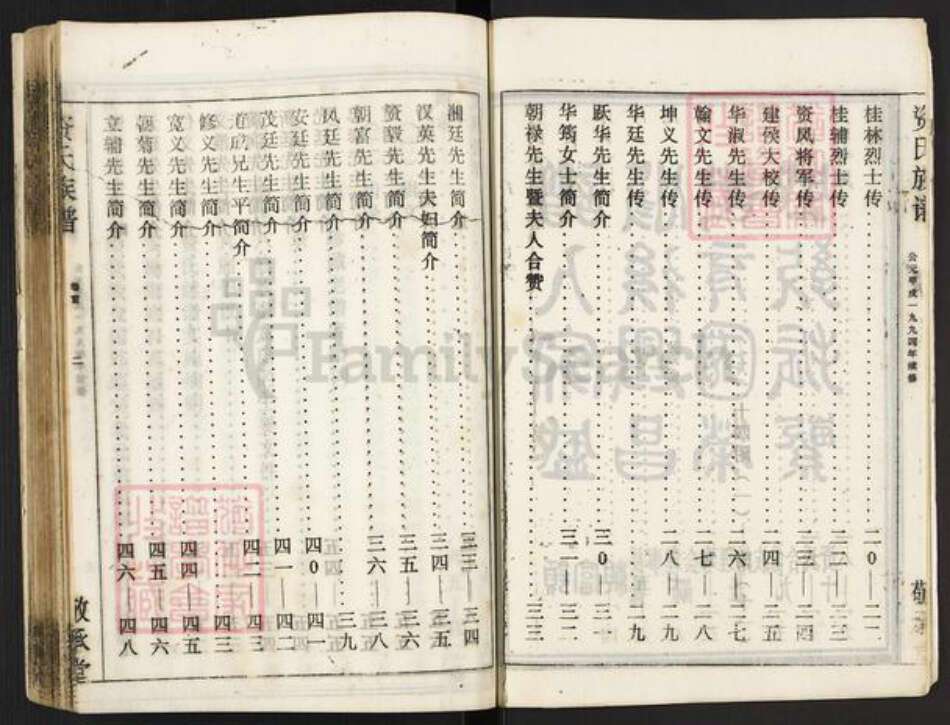 资氏族谱
公元甲戌一九九四年续修
桂林烈士传 二0—二二
桂辅烈士传 二二—二三
资凤将军传 二三—二四
建侯大校传 二四—二五
华淑先生传 二六—二七
翰文先生传 二七—二八
坤义先生传 二八—二九
华廷先生传 二九
跃华先生简介 三0—三一
华筠女士简介 三一—三二
朝禄先生暨夫人合赞 三三
湘廷先生简介 三三—三四
汉英先生夫妇简介 三四—三五
资毅先生简介 三五—三六
朝富先生简介 三六—三八
凤廷先生简介 三九
安廷先生简介 四0—四一
茂廷先生简介 四一—四二
兄生平简介 四二—四三
修文先生简介 四三
宽文先生简介 四四—四五
先生简介 四五—四六
立辅先生简介 四六—四八
资氏族谱
卷首
二
敬承堂
FamilySearch